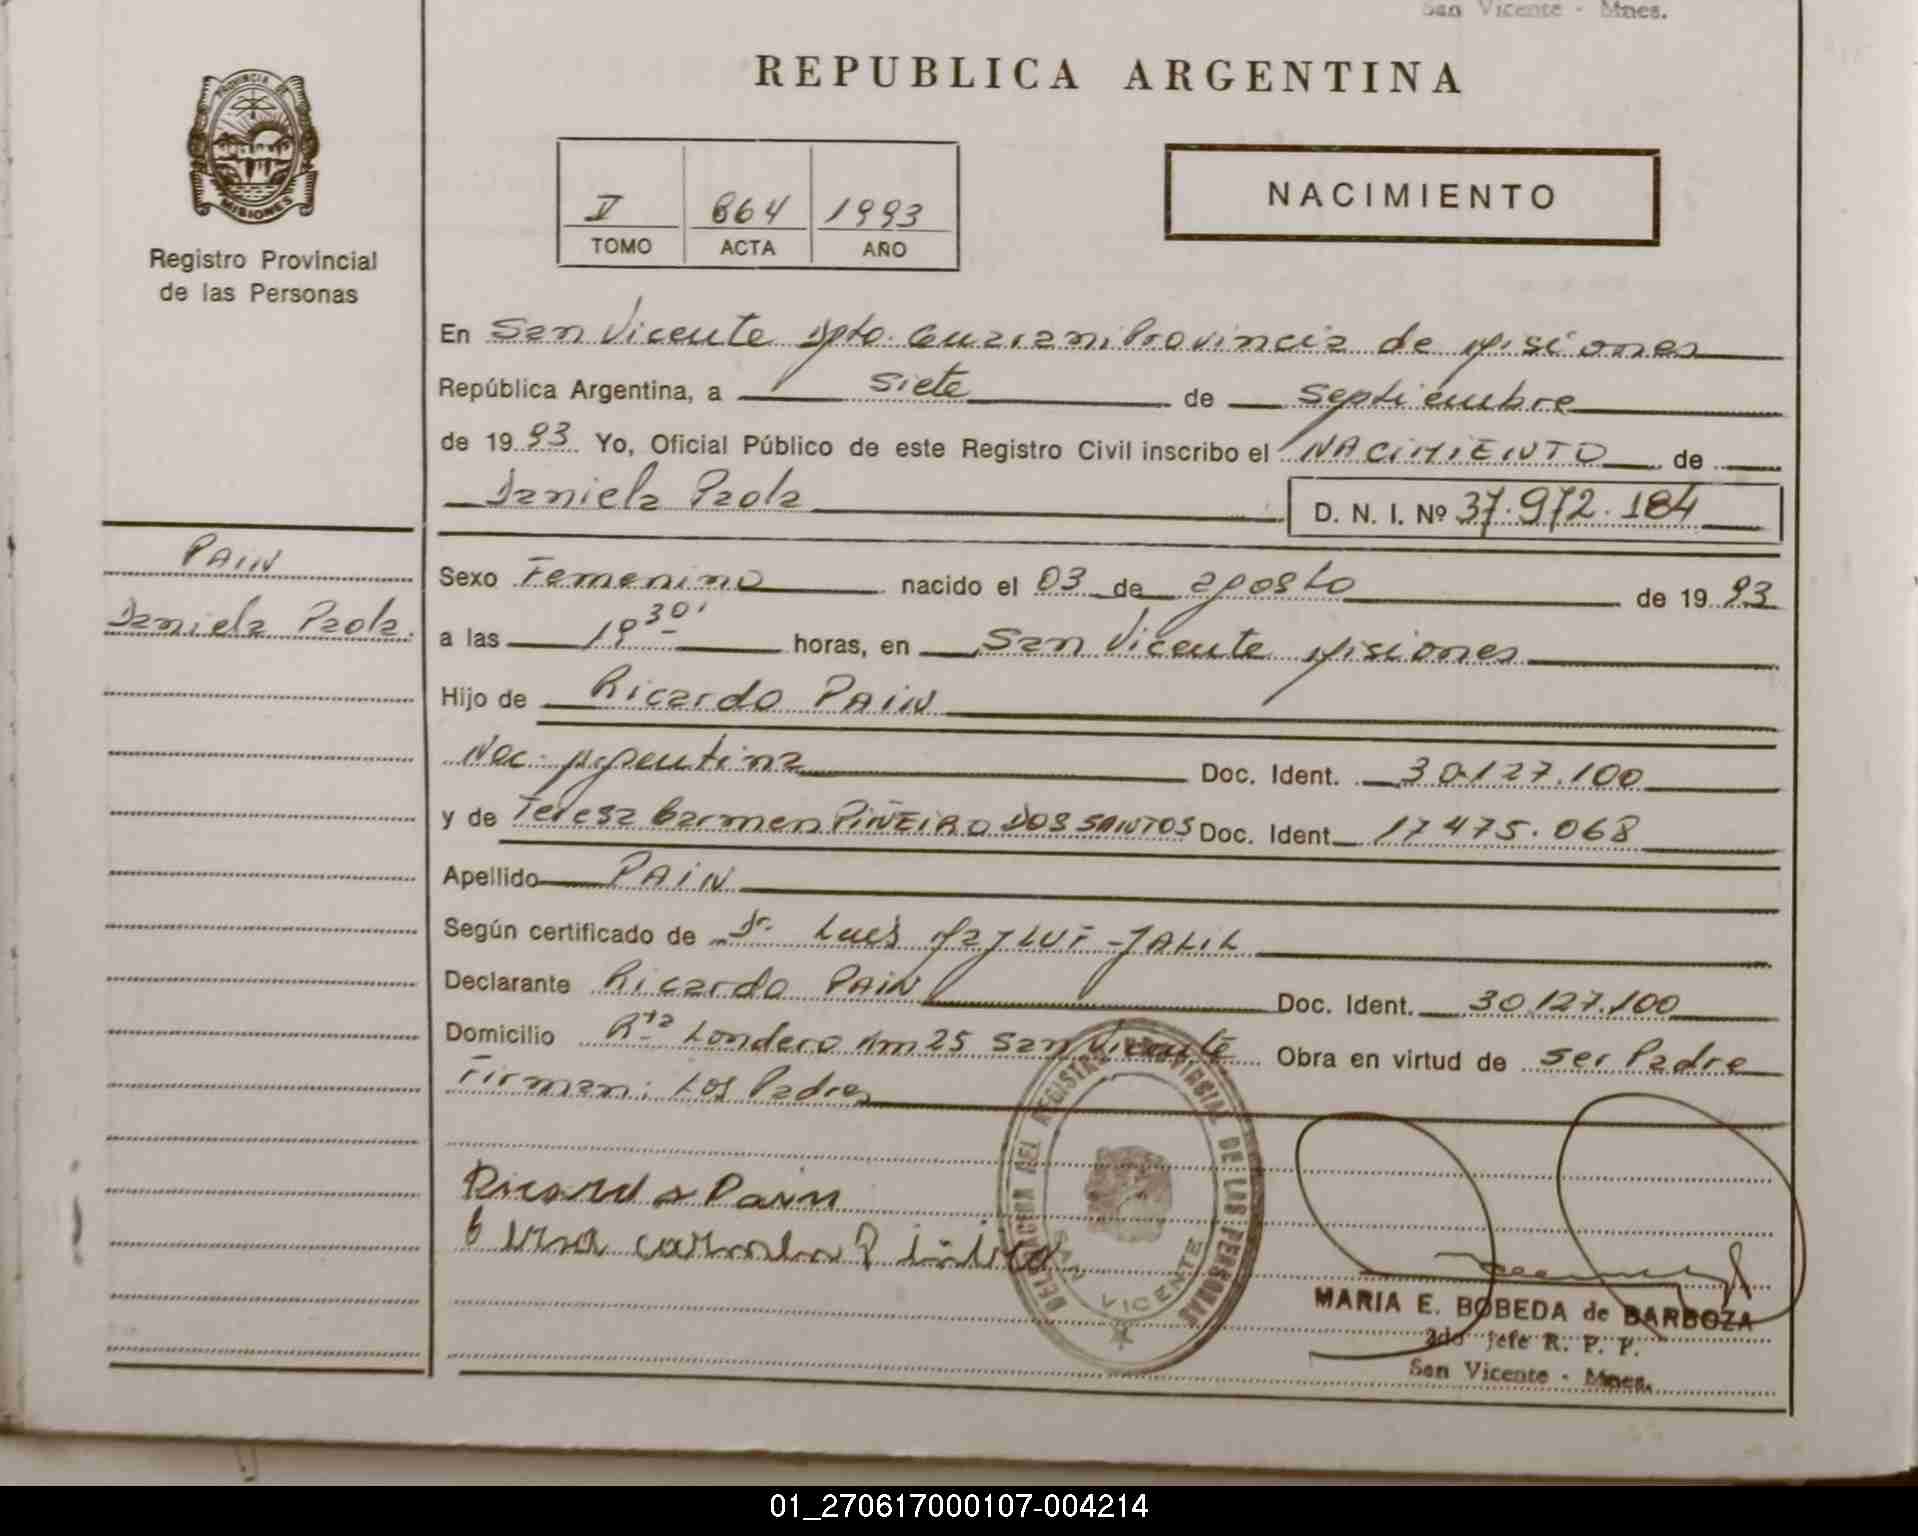 San Vicente - Mnes.
REPUBLICA ARGENTINA
PROVINCIA DE
MISIONES
Registro Provincial
de las Personas
V 864 1993
TOMO ACTA AÑO
NACIMIENTO
En San Vicente Dpto. Guarani Provincia de Misiones
República Argentina, a siete de septiembre
de 1993 Yo, Oficial Público de este Registro Civil inscribo el NACIMIENTO de
Daniela Paola D. N. I. Nº 37.972.184
PAIN
Daniela Paola.
Sexo Femenino nacido el 03 de agosto de 1993
a las 19 30' horas, en San Vicente Misiones
Hijo de Ricardo PAIN
Nac. Argentina Doc. Ident. 30.127.100
y de Teresa Carmen PIÑEIRO DOS SANTOS Doc. Ident. 17475.068
Apellido PAIN
Según certificado de Dr. Luis JALIL
Declarante Ricardo PAIN Doc. Ident. 30.127.100
Domicilio Rta Londero Km 25 San Vicente Obra en virtud de ser Padre
Firman: Los Padres
Ricardo Pain
carmen
DEL REGISTRO PROVINCIAL DE LAS PERSONAS
SAN VICENTE
MARIA E. BOBEDA de BARBOZA
2do Jefe R. P. P.
San Vicente - Mnes.
01_270617000107-004214